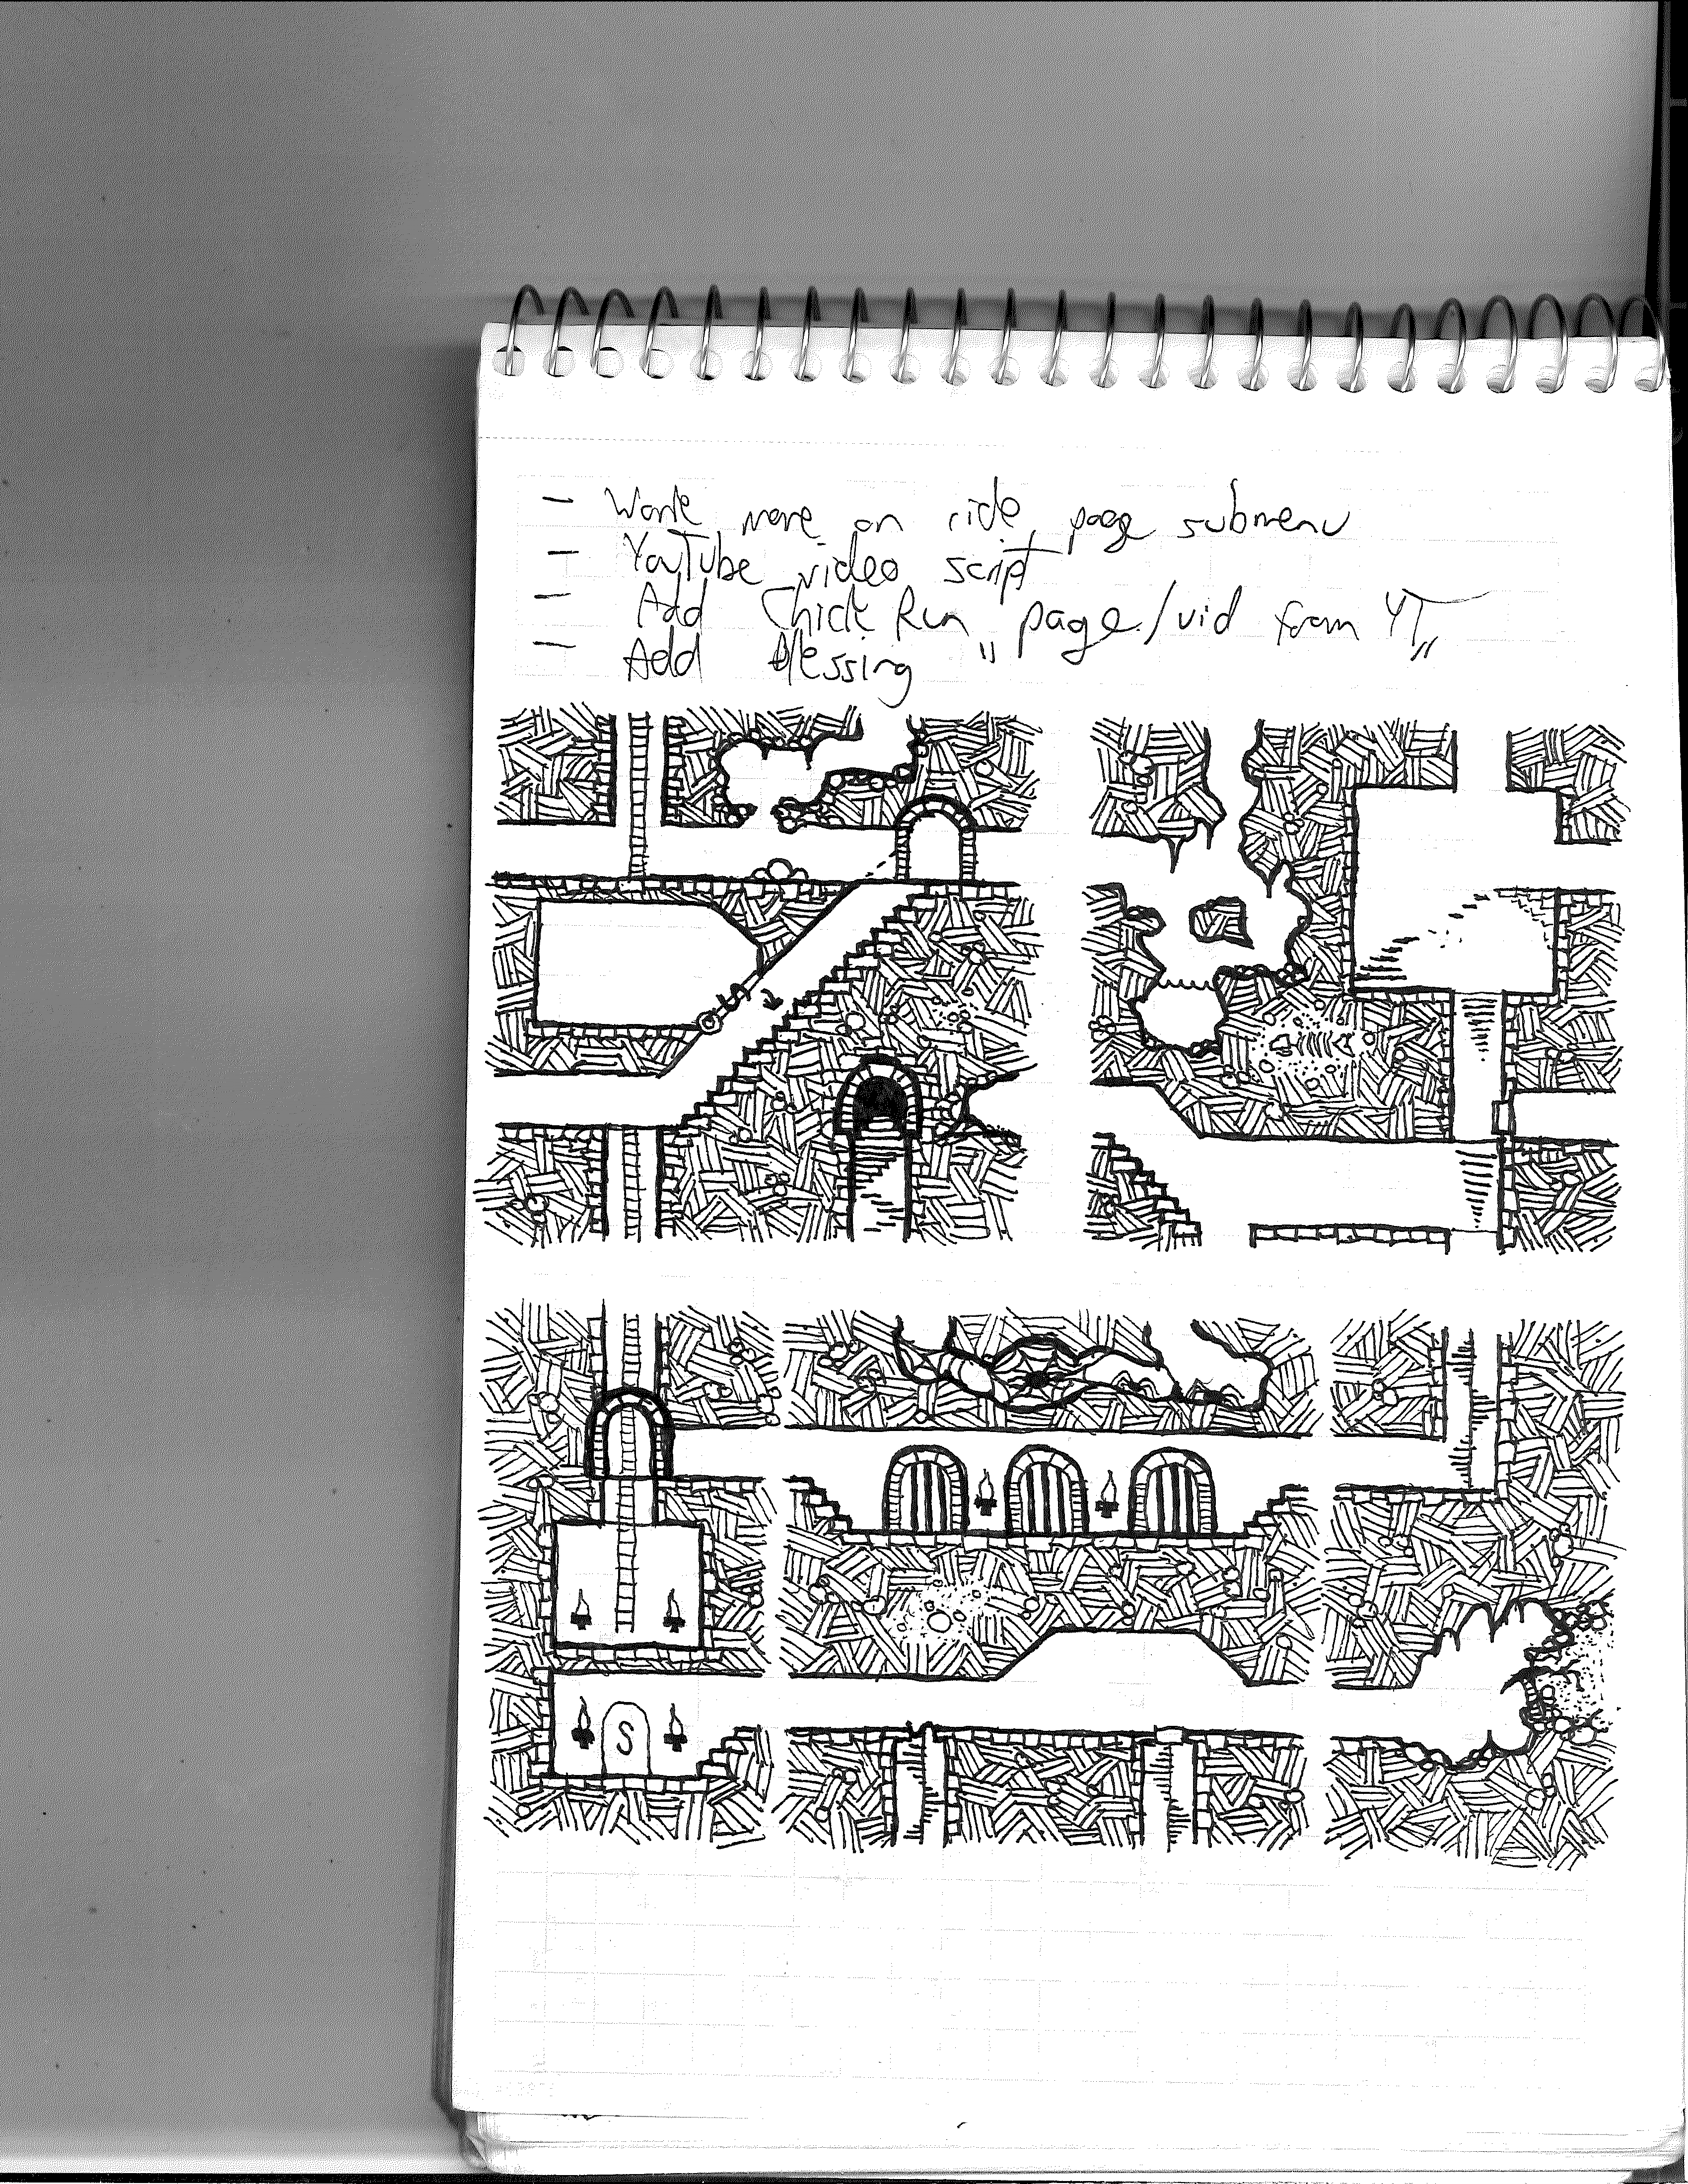 - Work more on ride page submenu
- YouTube video script
- Add Chick Run page/vid from YT
- Add Blessing " "
S